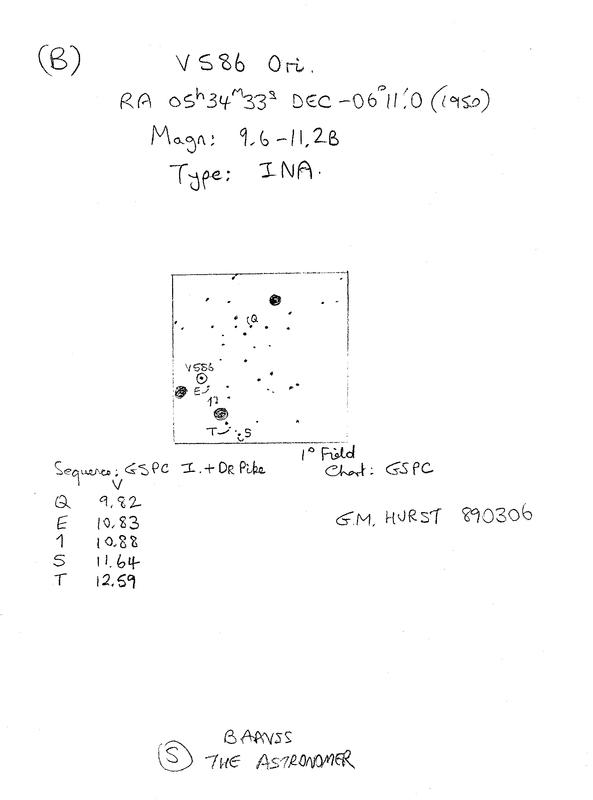 (B)
V586 Ori.
RA 05h34m33s DEC -06°11'.0 (1950)
Magn: 9.6-11.2B
Type: INA.
Q
V586
E
1
T
S
1° Field
Sequence: GSPC I. + DR Pike
Chart: GSPC
V
Q 9.82
E 10.83
1 10.88
S 11.64
T 12.59
G.M. HURST 890306
BAAVSS
(S) THE ASTRONOMER